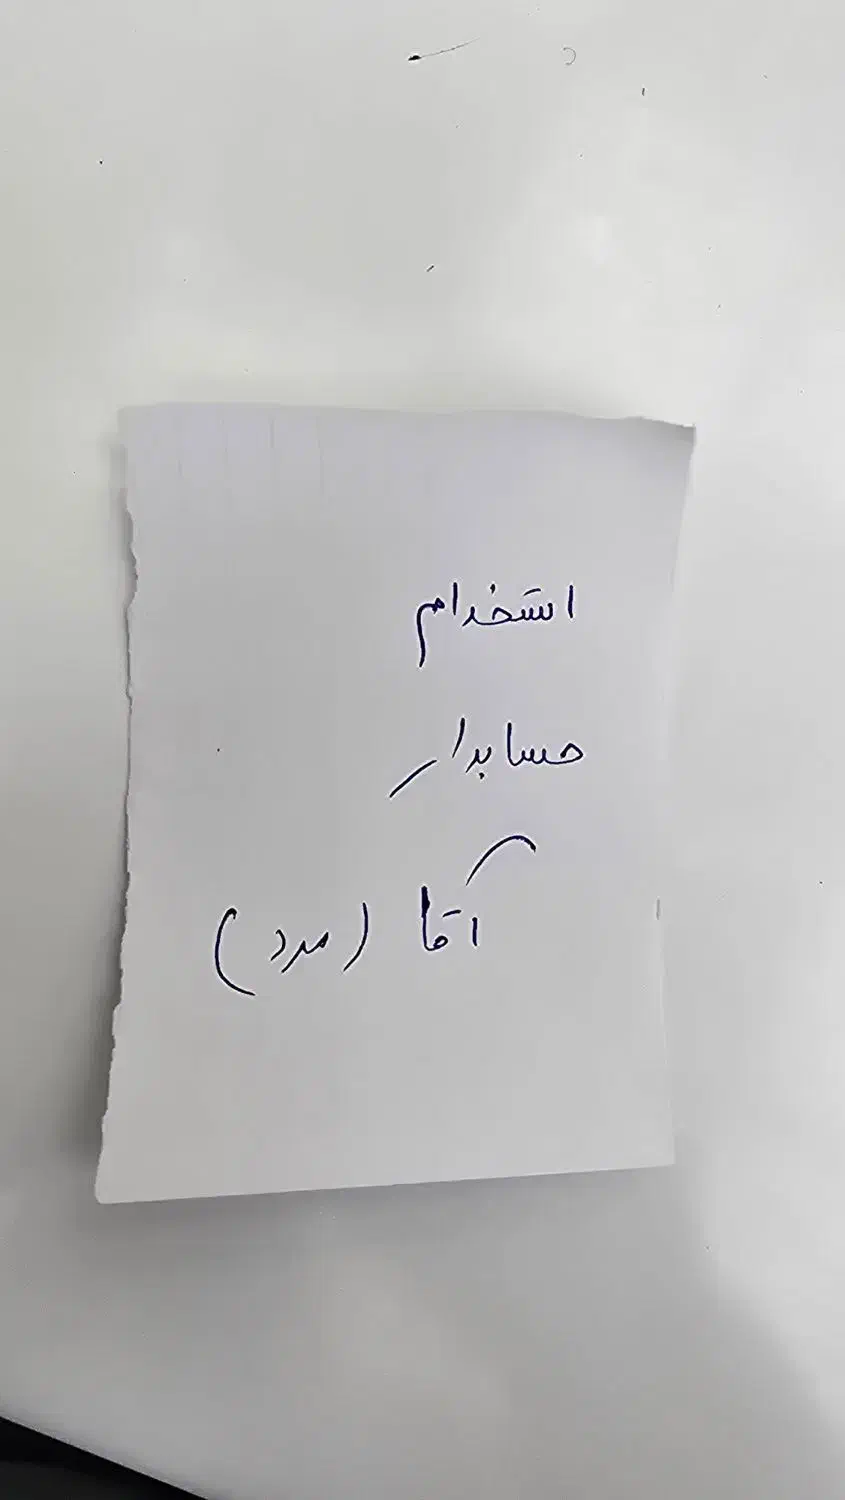 استخدام
حسابدار
آقا (مرد)